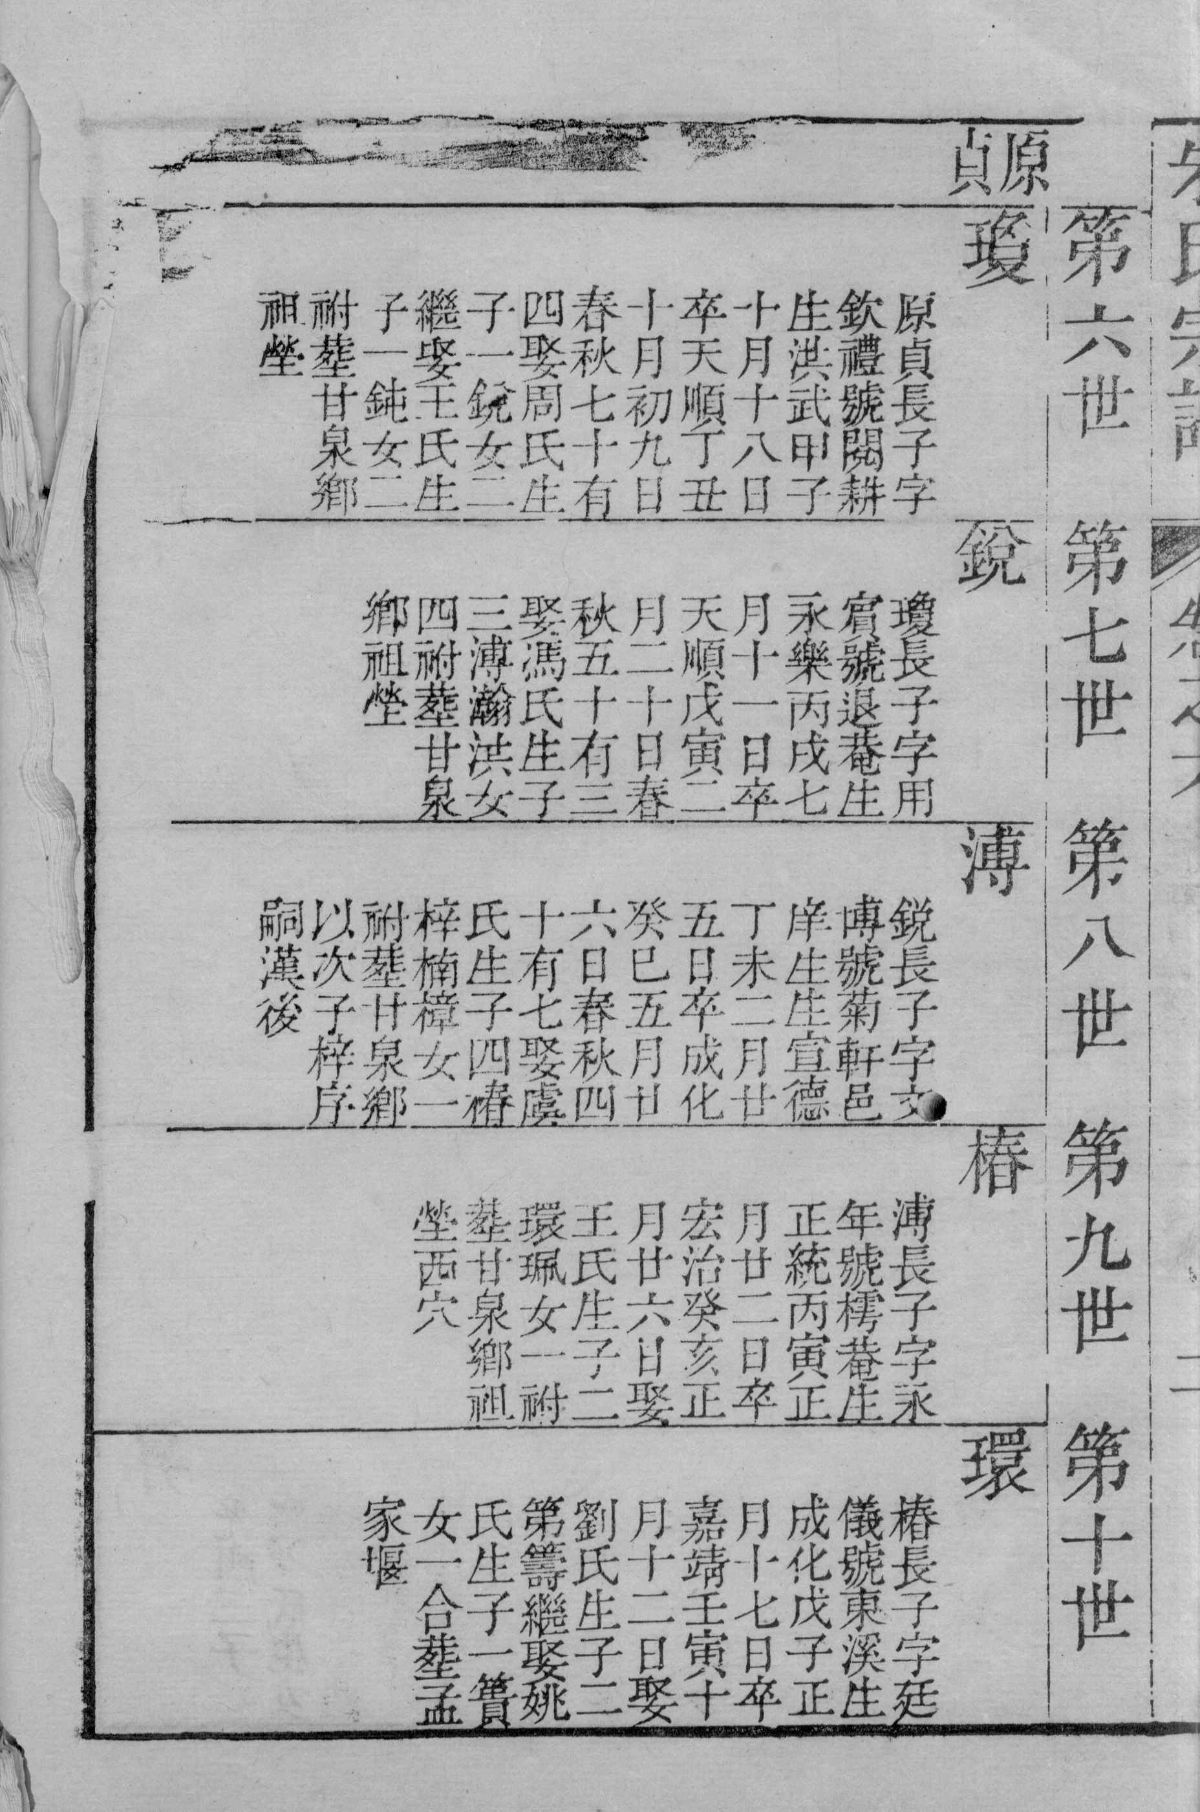 氏宗譜
卷之
二
第六世
第七世
第八世
第九世
第十世
原貞
瓊
原貞長子字
欽禮號閱耕
生洪武甲子
十月十八日
卒天順丁丑
十月初九日
春秋七十有
四娶周氏生
子一銳女二
繼娶王氏生
子一鈍女二
祔塟甘泉鄉
祖塋
銳
瓊長子字用
賔號退菴生
永樂丙戌七
月十一日卒
天順戊寅二
月二十日春
秋五十有三
娶馮氏生子
三溥瀚洪女
四祔塟甘泉
鄉祖塋
溥
銳長子字文
博號菊軒邑
庠生生宣德
丁未二月廿
五日卒成化
癸巳五月廿
六日春秋四
十有七娶虞
氏生子四椿
梓楠樟女一
祔塟甘泉鄉
以次子梓序
嗣漢後
椿
溥長子字永
年號樗菴生
正統丙寅正
月廿二日卒
宏治癸亥正
月廿六日娶
王氏生子二
環珮女一祔
塟甘泉鄉祖
塋西穴
環
椿長子字廷
儀號東溪生
成化戊子正
月十七日卒
嘉靖壬寅十
月十二日娶
劉氏生子二
第籌繼娶姚
氏生子一簣
女一合塟孟
家堰